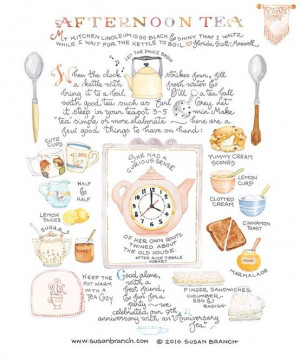 AFTERNOON TEA
MY KITCHEN LINOLEUM IS SO BLACK & SHINY THAT I WALTZ
WHILE I WAIT FOR THE KETTLE TO BOIL ♥ Florida Scott-Maxwell
LET THE DANCE BEGIN
When the clock strikes four, fill
a kettle with fresh water &
bring it to a boil. Fill a tea ball
with good tea such as Earl Grey. Let
it steep in your teapot 3-5 min. Make
tea simple or more elaborate — here are a
few good things to have on hand:
CUTE
CUPS
HALF
&
HALF
LEMON
SLICES
SUGAR
KEEP THE
POT WARM
WITH A
TEA COZY
SHE HAD A
CURIOUS SENSE
OF HER OWN ROOTS
TWINED ABOUT
THE OLD HOUSE.
YUMMY CREAM
SCONES
LEMON
CURD
CLOTTED
CREAM
CINNAMON
TOAST
MARMALADE
Good alone,
with a
best friend,
& fun for a
party — we
celebrated our 9th
anniversary with an "Anniversary
Tea."
FINGER SANDWICHES
CUCUMBER,
EGG &
RADISH
www.susanbranch.com © 2010 SUSAN BRANCH